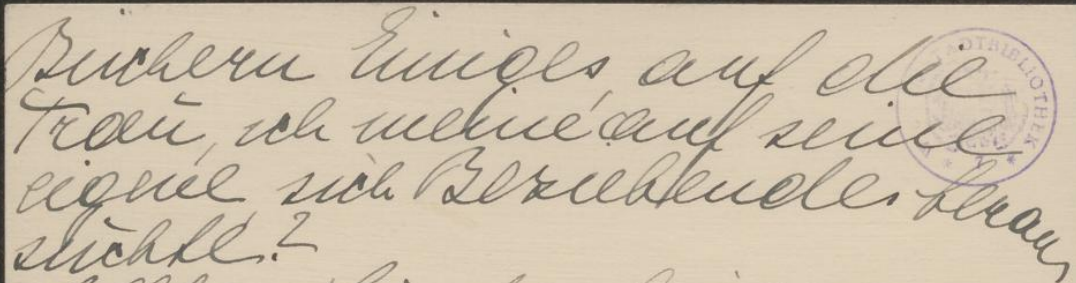 Büchern Einiges, auf die
Frau, ich meine auf seine
eigene, sich Beziehendes heraus
suchte?
STADTBIBLIOTHEK